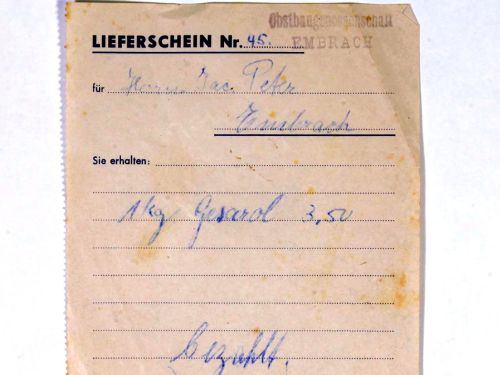 Obstbaugenossenschaft
EMBRACH
LIEFERSCHEIN Nr. 45.
für Herrn Jac. Peter
Embrach
Sie erhalten:
1 kg Gesarol 3,50
bezahlt.